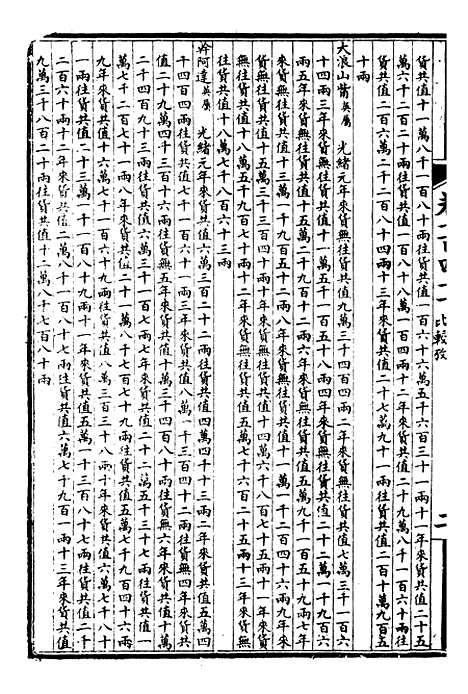 貨共值十一萬八千一百八十四兩往貨共值一百六十六萬五千六百三十一兩十一年來貨共值二十五
萬六千二百二十兩往貨共值一百八十八萬一百四兩十二年來貨共值二十九萬八千一百六十兩往
貨共值二百六十萬二千二百四兩十三年來貨共值二十七萬九千一兩往貨共值二百十萬九百五
十兩
大浪山嘴英屬 光緒元年來貨無往貨共值九萬三千四百四兩二年來貨無往貨共值七萬三十一百六
十四兩三年來貨無往貨共值十一萬一千一百五十八兩四年來貨無往貨共值二十二萬一千九百六
兩五年來貨無往貨共值十五萬二十九百十二兩六年來貨無往貨共值十一萬八千五百九兩七年
來貨無往貨共值十三萬一千九百五十二兩八年來貨無往貨共值十一萬一千二百四十六兩九年來
貨無往貨共值十五萬三千三百四十兩十年來貨無往貨共值十四萬六千八百五十一兩十一年來貨
無往貨共值十八萬五千九百七十一兩十二年來貨無往貨共值十五萬二百四十兩十三年來貨無
往貨共值十八萬七千八百六十三兩
幹阿達英屬 光緒元年來貨共值六萬三百二十二兩往貨共值四萬四千十三兩二年來貨共值五萬四
千四百四兩往貨共值九千一百六十一兩三年來貨共值八萬一千三百二十四兩往貨無四年來貨共
值二十九萬四千三百十六兩往貨無五年來貨共值十萬三千二百三十兩往貨無六年來貨共值十萬
二十四百九十三兩往貨共值六萬二千一百七兩七年來貨共值二十二萬五千三十七兩往貨共值一
萬七千二百七十一兩八年來貨共值二十一萬八千七百七十九兩往貨共值五萬七千九百四十六兩
九年來貨共值十六萬七千一百六十九兩往貨共值八萬三百三十八兩十年來貨共值六萬七千八十
一兩往貨共值二十三萬一千一百八十九兩十一年來貨共值五萬一千三百八十七兩往貨共值二千
二百六十兩十二年來貨共值六萬一百八十七兩往貨共值六萬七千九百一兩十三年來貨共值
九萬三千八百二十兩往貨共值十二萬八千七百八十兩
卷一百四十二
比較攷
二